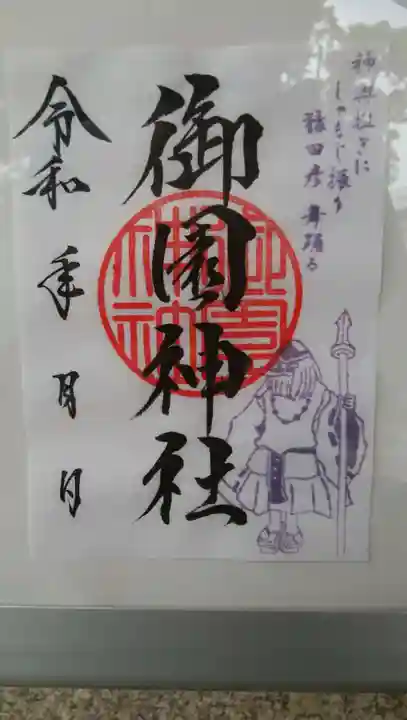 神輿担ぎに
しゃもじ振り
猿田彦舞踊る
御園神社
令和 年 月 日